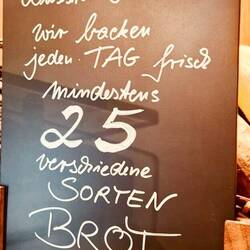 wir backen
jeden TAG frisch
mindestens
25
verschiedene
SORTEN
BROT